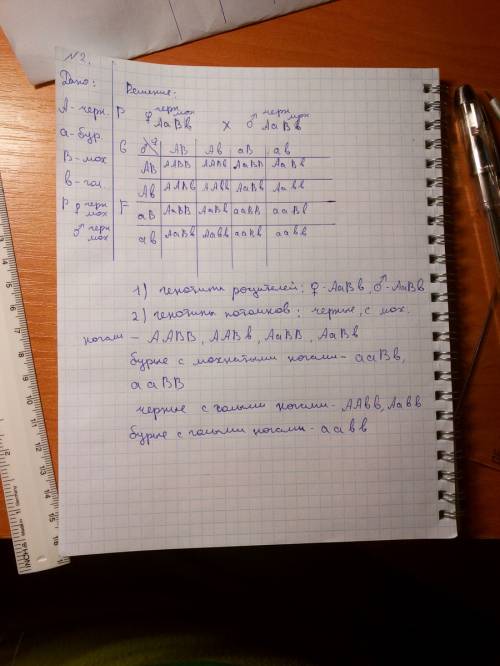 №2.
Дано:
Решение:
А - черн.
а - бур.
В - мох
в - гол
Р ♀ черн мох
♂ черн мох
Р ♀ черн мох АаВв х ♂ черн мох АаВв
G ♂ ♀ АВ Ав аВ ав
АВ ААВВ ААВв АаВВ АаВв
Ав ААВв ААвв АаВв Аавв
F аВ АаВВ АаВв ааВВ ааВв
ав АаВв Аавв ааВв аавв
1) генотипы родителей: ♀ - АаВв, ♂ - АаВв
2) генотипы потомков: черные, с мох.
ногами - ААВВ, ААВв, АаВВ, АаВв
бурые с мохнатыми ногами - ааВв,
ааВВ
черные с голыми ногами - ААвв, Аавв
бурые с голыми ногами - аавв